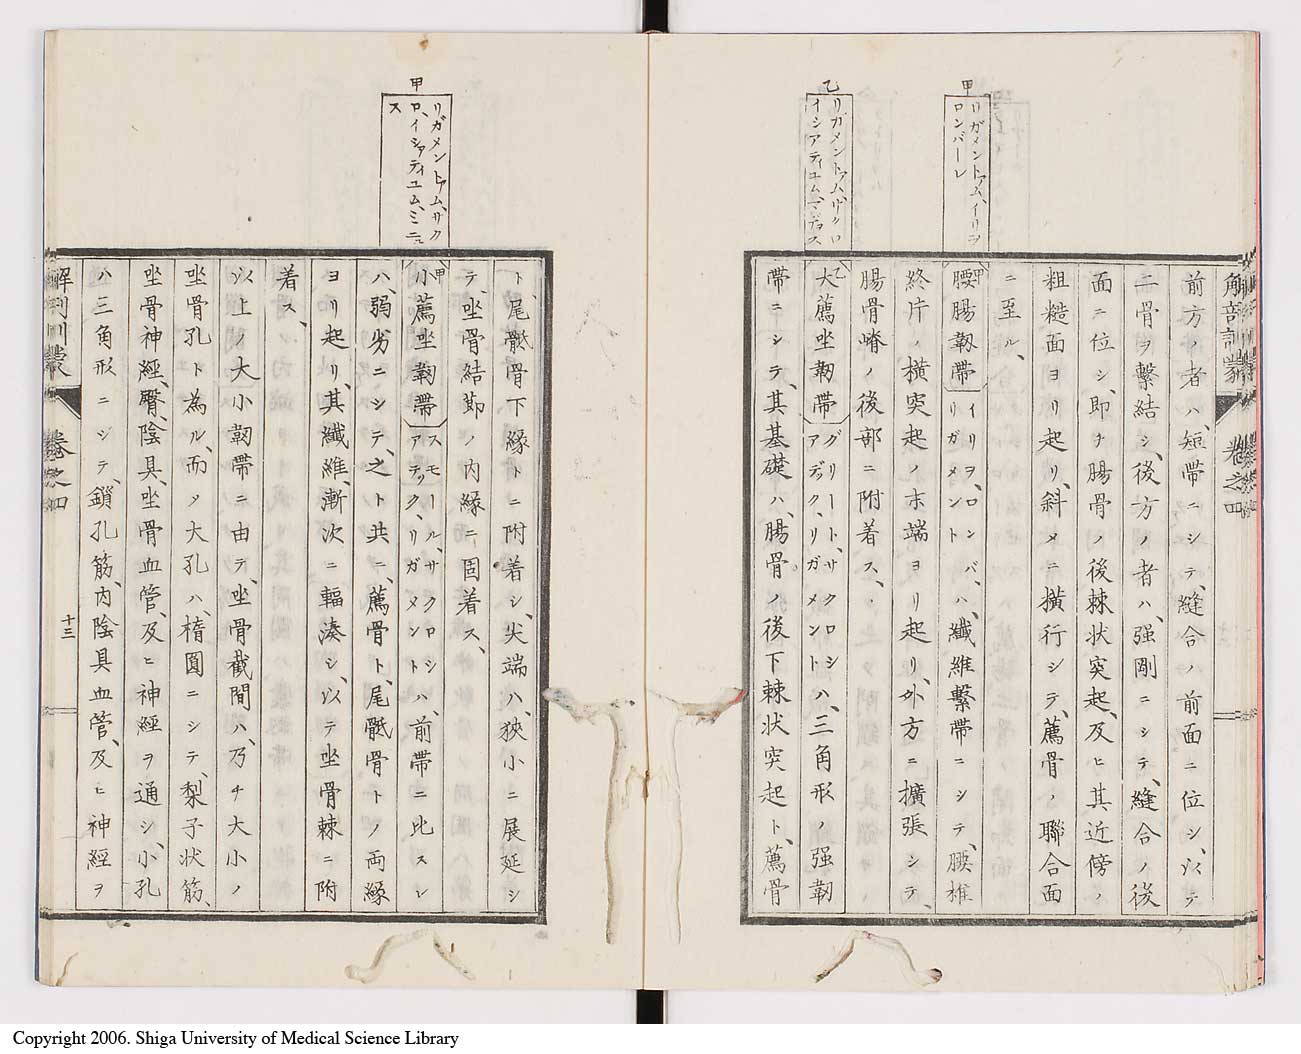 甲
リガメントアム、イリヲ
ロンバーレ
乙
リガメントアム、サクロ
イシアティユム、マヂュス
解剖訓蒙 卷之四
前方ノ者ハ、短帶ニシテ、縫合ハ前面ニ位シ、以テ
二骨ヲ繫結シ、後方ノ者ハ、强剛ニシテ、縫合ノ後
面ニ位シ、卽チ腸骨ノ後棘狀突起、及ヒ其近傍ノ
粗糙面ヨリ起リ、斜メニ橫行シテ、薦骨ノ聯合面
ニ至ル、
甲腰腸韌帶 イリヲ、ロンバ、リガメントハ、纎維繫帶ニシテ、腰椎
終片ノ橫突起ノ末端ヨリ起リ、外方ニ擴張シテ、
腸骨嵴ノ後部ニ附着ス、
乙大薦坐韌帶 グリート、サクロシアヂック、リガメントハ、三角形ノ强韌
帶ニシテ、其基礎ハ、腸骨ノ後下棘狀突起ト、薦骨
甲
リガメントアム、サク
ロ、イシアティユム、ミニュ
ス
ト、尾骶骨下緣トニ附着シ、尖端ハ、狹小ニ展延シ
テ、坐骨結節ノ內緣ニ固着ス、
甲小薦坐韌帶 スモール、サクロシアヂック、リガメントハ、前帶ニ比スレ
ハ、弱劣ニシテ、之ト共ニ、薦骨ト、尾骶骨トノ両緣
ヨリ起リ、其纎維、漸次ニ輻湊シ、以テ坐骨棘ニ附
着ス、
以上ノ大小韌帶ニ由テ、坐骨截間ハ、乃チ大小ノ
坐骨孔ト為ル、而ノ大孔ハ、楕圓ニシテ、梨子狀筋、
坐骨神經、臀、陰具、坐骨血管、及ヒ神經ヲ通シ、小孔
ハ、三角形ニシテ、鎖孔筋、內陰具血管、及ヒ神經ヲ
解剖訓蒙 卷之四 十三
Copyright 2006. Shiga University of Medical Science Library